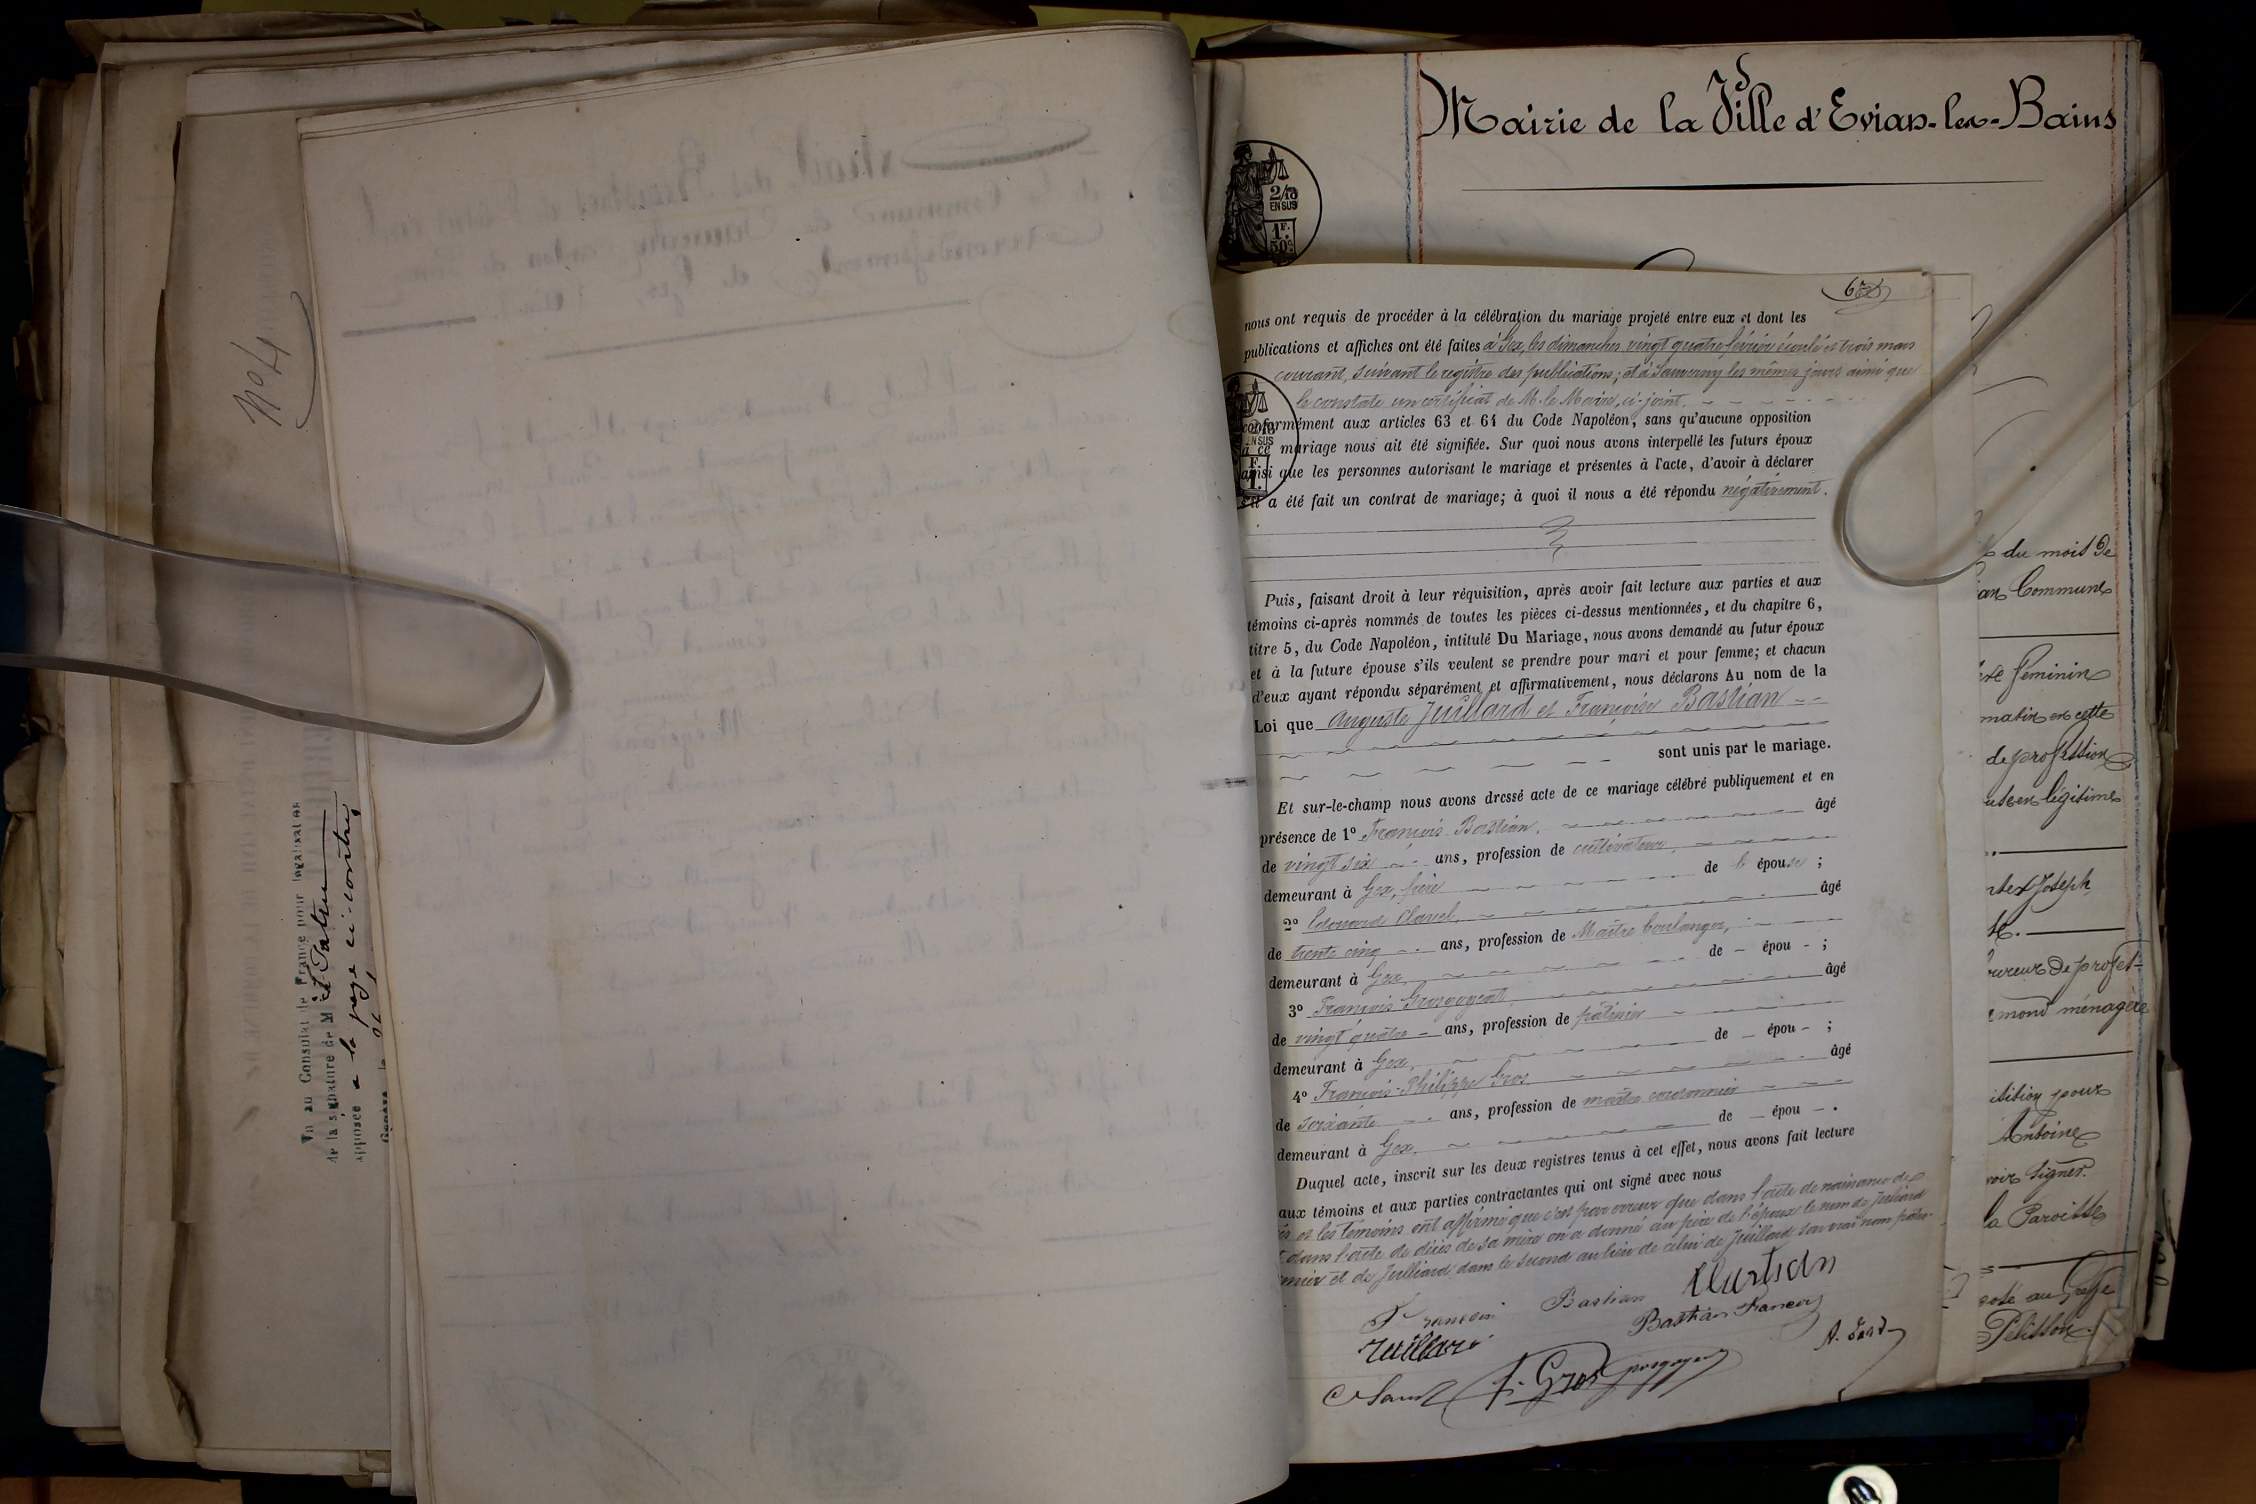 No 4
Vu au Consulat de France pour légalisation
de la signature de M
apposée a la page ci-contre
Mairie de la Ville d'Evian-les-Bains
2/10
EN SUS
1F.
50c.
nous ont requis de procéder à la célébration du mariage projeté entre eux et dont les
publications et affiches ont été faites à Gex, les dimanches vingt quatre février écoulé et trois mars
courant, suivant le registre des publications; et à Sauverny les mêmes jours ainsi que
le constate un certificat de M. le Maire, ci-joint.
conformément aux articles 63 et 64 du Code Napoléon, sans qu'aucune opposition
à ce mariage nous ait été signifiée. Sur quoi nous avons interpellé les futurs époux
ainsi que les personnes autorisant le mariage et présentes à l'acte, d'avoir à déclarer
s'il a été fait un contrat de mariage; à quoi il nous a été répondu négativement.
Puis, faisant droit à leur réquisition, après avoir fait lecture aux parties et aux
témoins ci-après nommés de toutes les pièces ci-dessus mentionnées, et du chapitre 6,
titre 5, du Code Napoléon, intitulé Du Mariage, nous avons demandé au futur époux
et à la future épouse s'ils veulent se prendre pour mari et pour femme; et chacun
d'eux ayant répondu séparément et affirmativement, nous déclarons Au nom de la
Loi que Auguste Juillard et Françoise Bastian
sont unis par le mariage.
Et sur-le-champ nous avons dressé acte de ce mariage célébré publiquement et en
présence de 1º François Bastian, âgé
de vingt six ans, profession de cultivateur,
demeurant à Gex, frère de l'épouse ;
2º Edouard Clavel, âgé
de trente cinq ans, profession de Maître boulanger,
demeurant à Gex, de - épou - ;
3º François Grosgogeat, âgé
de vingt quatre ans, profession de
demeurant à Gex, de - épou - ;
4º François-Philippe Gros âgé
de soixante ans, profession de maître cordonnier
demeurant à Gex, de - épou - .
Duquel acte, inscrit sur les deux registres tenus à cet effet, nous avons fait lecture
aux témoins et aux parties contractantes qui ont signé avec nous
et les témoins ont affirmé que c'est par erreur que dans l'acte de naissance de
dans l'acte de décès de sa mère on a donné au père de l'époux le nom de Julliard
et de Julliard dans le second au lieu de celui de Juillard son vrai nom
François Bastian
Bastian Francois
Juillard
F. Gros
du mois de
Commune
féminin
matin en cette
de profession
légitime
Joseph
de profes=
ménagère
pour
Antoine
signer.
la Paroisse
au Greffe
Pelisson